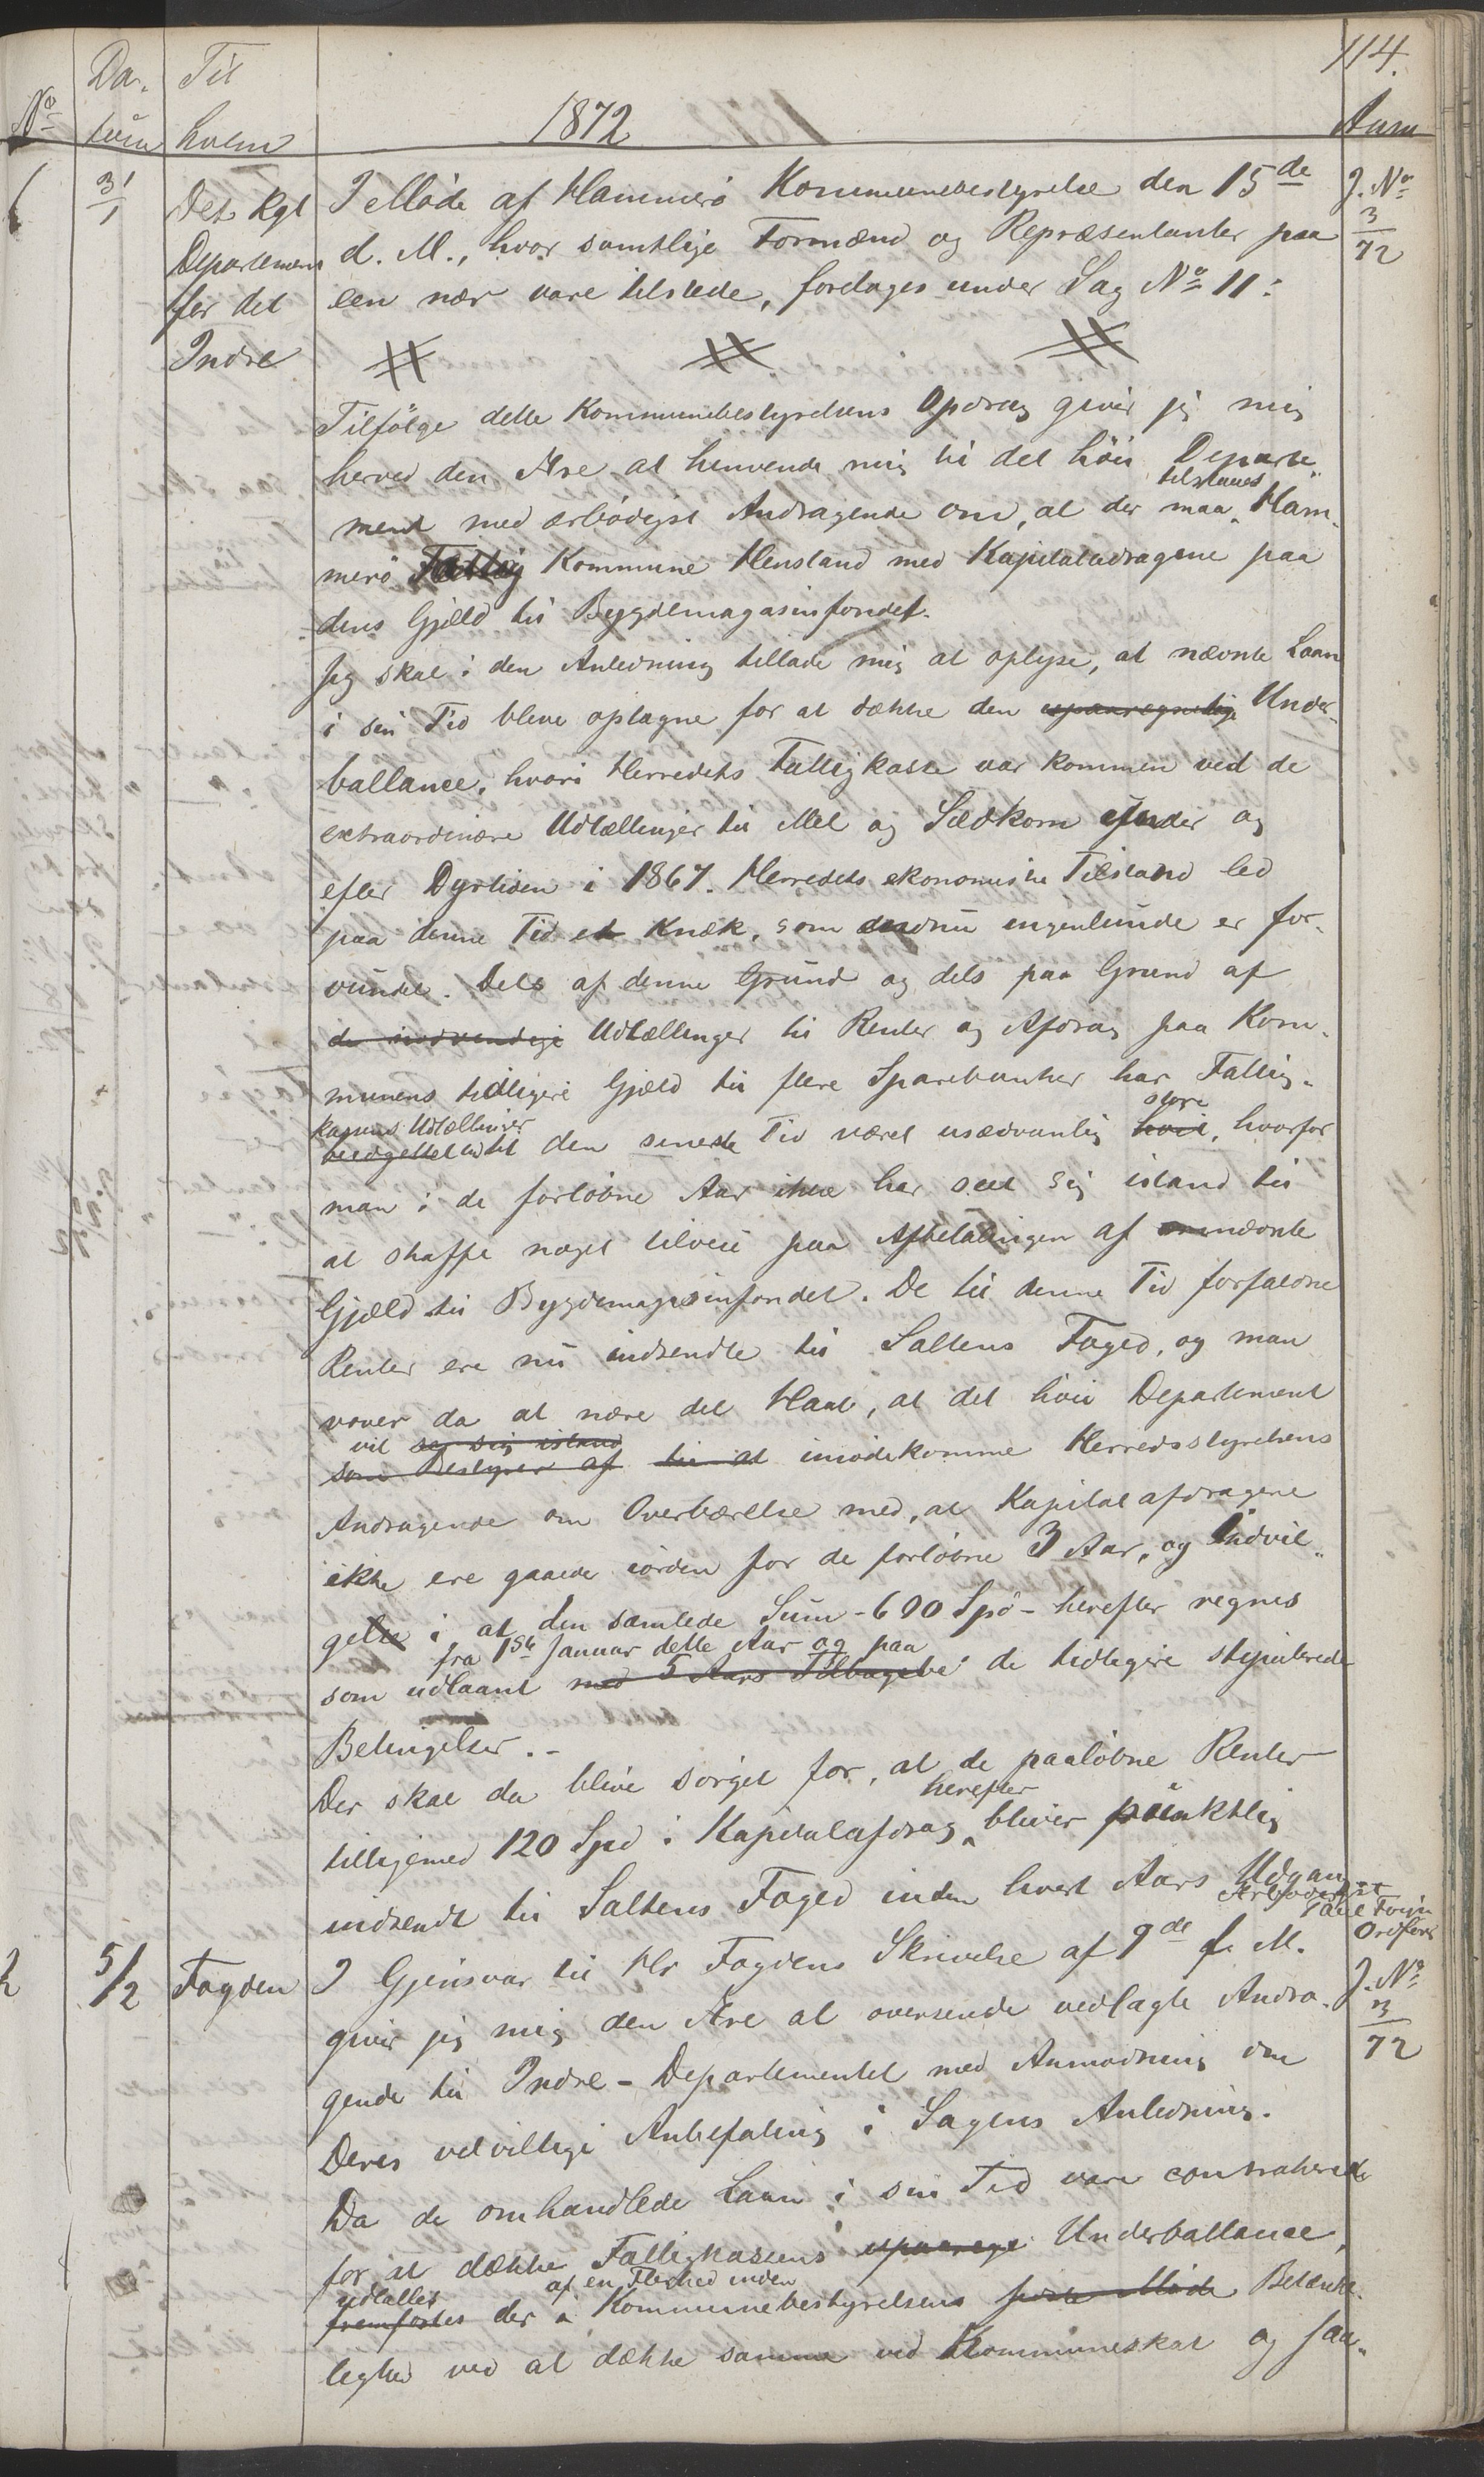 114.
No Da-tum Til hvem 1872 Anm
1 31/1 Det kgl Departement for det Indre J. No 3/72
I Møde af Hammerø Kommunebestyrelse den 15de
d. M., hvor samtlige Formænd og Repræsentanter paa
een nær vare tilstede, foretages under Sag No 11:
# # #
Tilfølge dette Kommunebestyrelsens Opdrag giver jeg mig
herved den Ære at henvende mig til det høie Departe-
ment med ærbødigst Andragende om, at der maa tilstaaes Ham-
merø Fattig Kommune Henstand med Kapitalafdragene paa
dens Gjæld til Bygdemagasinfondet.
Jeg skal i den Anledning tillade mig at oplyse, at nævnte Laan
i sin Tid bleve optagne for at dække den upaaregnelige Under-
ballance, hvori Herredets Fattigkasse var kommen ved de
extraordinære Udtællinger til Mel og Sædkorn under og
efter Dyrtiden i 1867. Herredets økonomiske Tilstand led
paa denne Tid et Knæk, som endnu ingenlunde er for-
vundet. Dels af denne Grund og dels paa Grund af
de nødvendige Udtællinger til Renter og Afdrag paa Kom-
munens tidligere Gjæld til flere Sparebanker har Fattig-
kassens Udtællinger
den seneste Tid været usædvanlig høit, store hvorfor
man i de forløbne Aar ikke har seet sig istand til
at skaffe noget tilveie paa Afbetalingen af omnævnte
Gjæld til Bygdemagasinfondet. De til denne Tid forfaldne
Renter ere nu indsendte til Saltens Foged, og man
vover da at nære det Haab, at det høie Departement
vil see sig istand
som Bestyrer af til at imødekomme Herredsstyrelsens
Andragende om Overbærelse med, at Kapitalafdragene
ikke ere gaaede iorden for de forløbne 3 Aar, og Indvil-
gelse i at den samlede Sum - 600 Spd - herefter regnes
fra 1ste Januar dette Aar og paa
som udlaant med 5 Aars Tilbagebe de tidligere stipulerede
Betingelser. -
Der skal da blive sørget for, at de paaløbne Renter
tilligemed 120 Spd i Kapitalafdrag herefter bliver punktlig
indsendt til Saltens Foged inden hvert Aars Udgang
Ærbødigst
Ordfører
2 5/2 Fogden J. No 3/72
I Gjensvar til Hr Fogdens Skrivelse af 9de f. M.
giver jeg mig den Ære at oversende vedlagte Andra-
gende til Indre-Departementet med Anmodning om
Deres velvillige Anbefaling i Sagens Anledning.
Da de omhandlede Laan i sin Tid vare contraherede
for at dække Fattigkassens upaarege Underballance,
udtaltes af en Flerhed inden
fremførtes der i Kommunebestyrelsens første Møde Betænke-
lighed ved at dække samme ved Kommuneskat og saa-